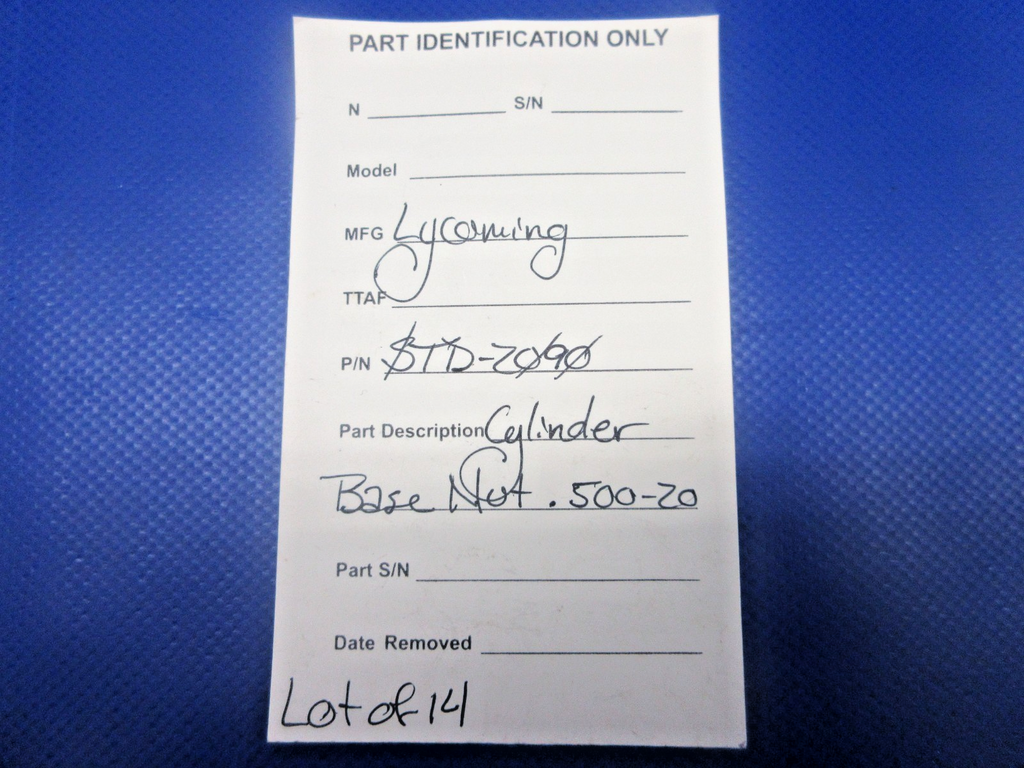 PART IDENTIFICATION ONLY
N S/N
Model
MFG Lycoming
TTAF
P/N STD-2090
Part Description Cylinder
Base Nut .500-20
Part S/N
Date Removed
Lot of 14